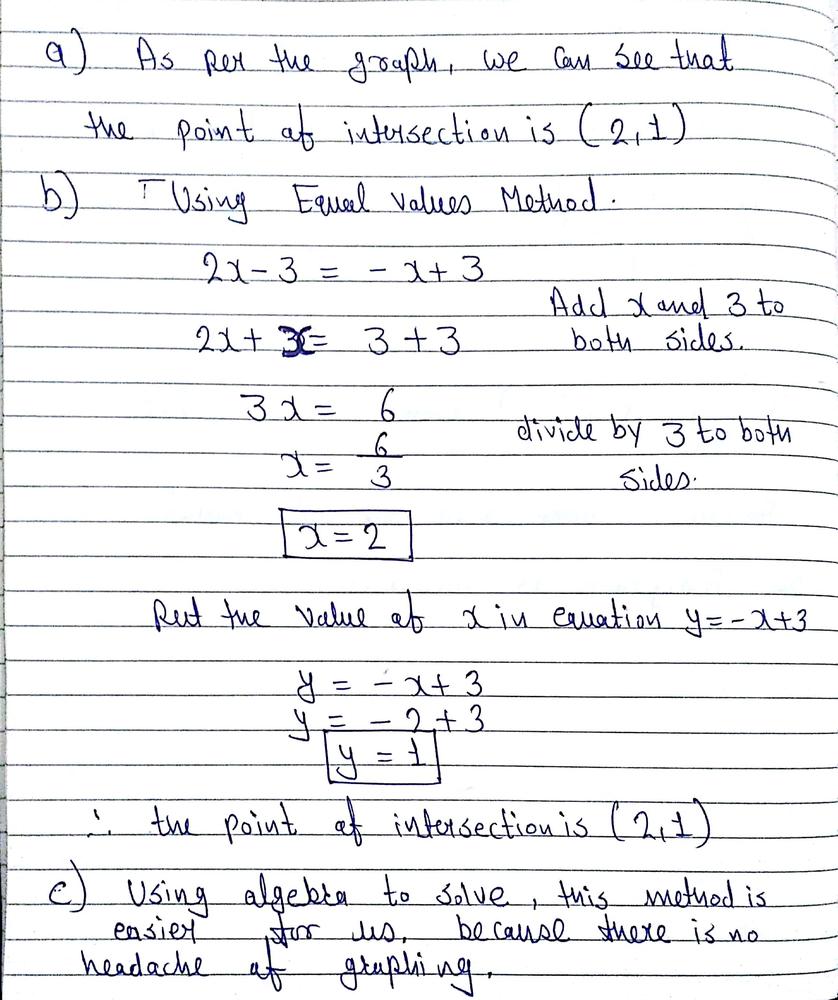 a) As per the graph, we can see that
the point of intersection is (2,1)
b) Using Equal values Method.
2x - 3 = - x + 3
Add x and 3 to
2x + x = 3 + 3 both sides.
3x = 6
divide by 3 to both
x = 6/3 sides.
x = 2
Put the value of x in equation y = -x+3
y = - x + 3
y = - 2 + 3
y = 1
∴ the point of intersection is (2,1)
c) Using algebra to solve, this method is
easier for us, because there is no
headache of graphing.